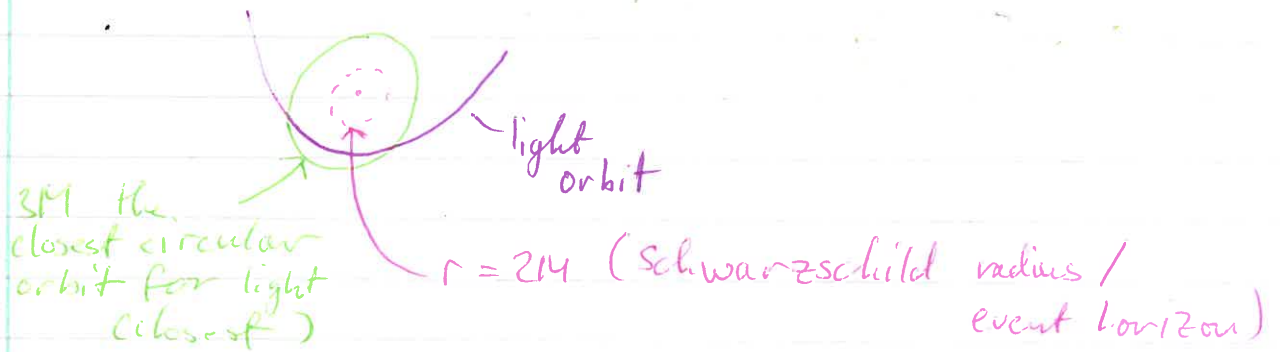 light
orbit
3M the
closest circular
orbit for light
(closest)
r = 2M (Schwarzschild radius /
event horizon)